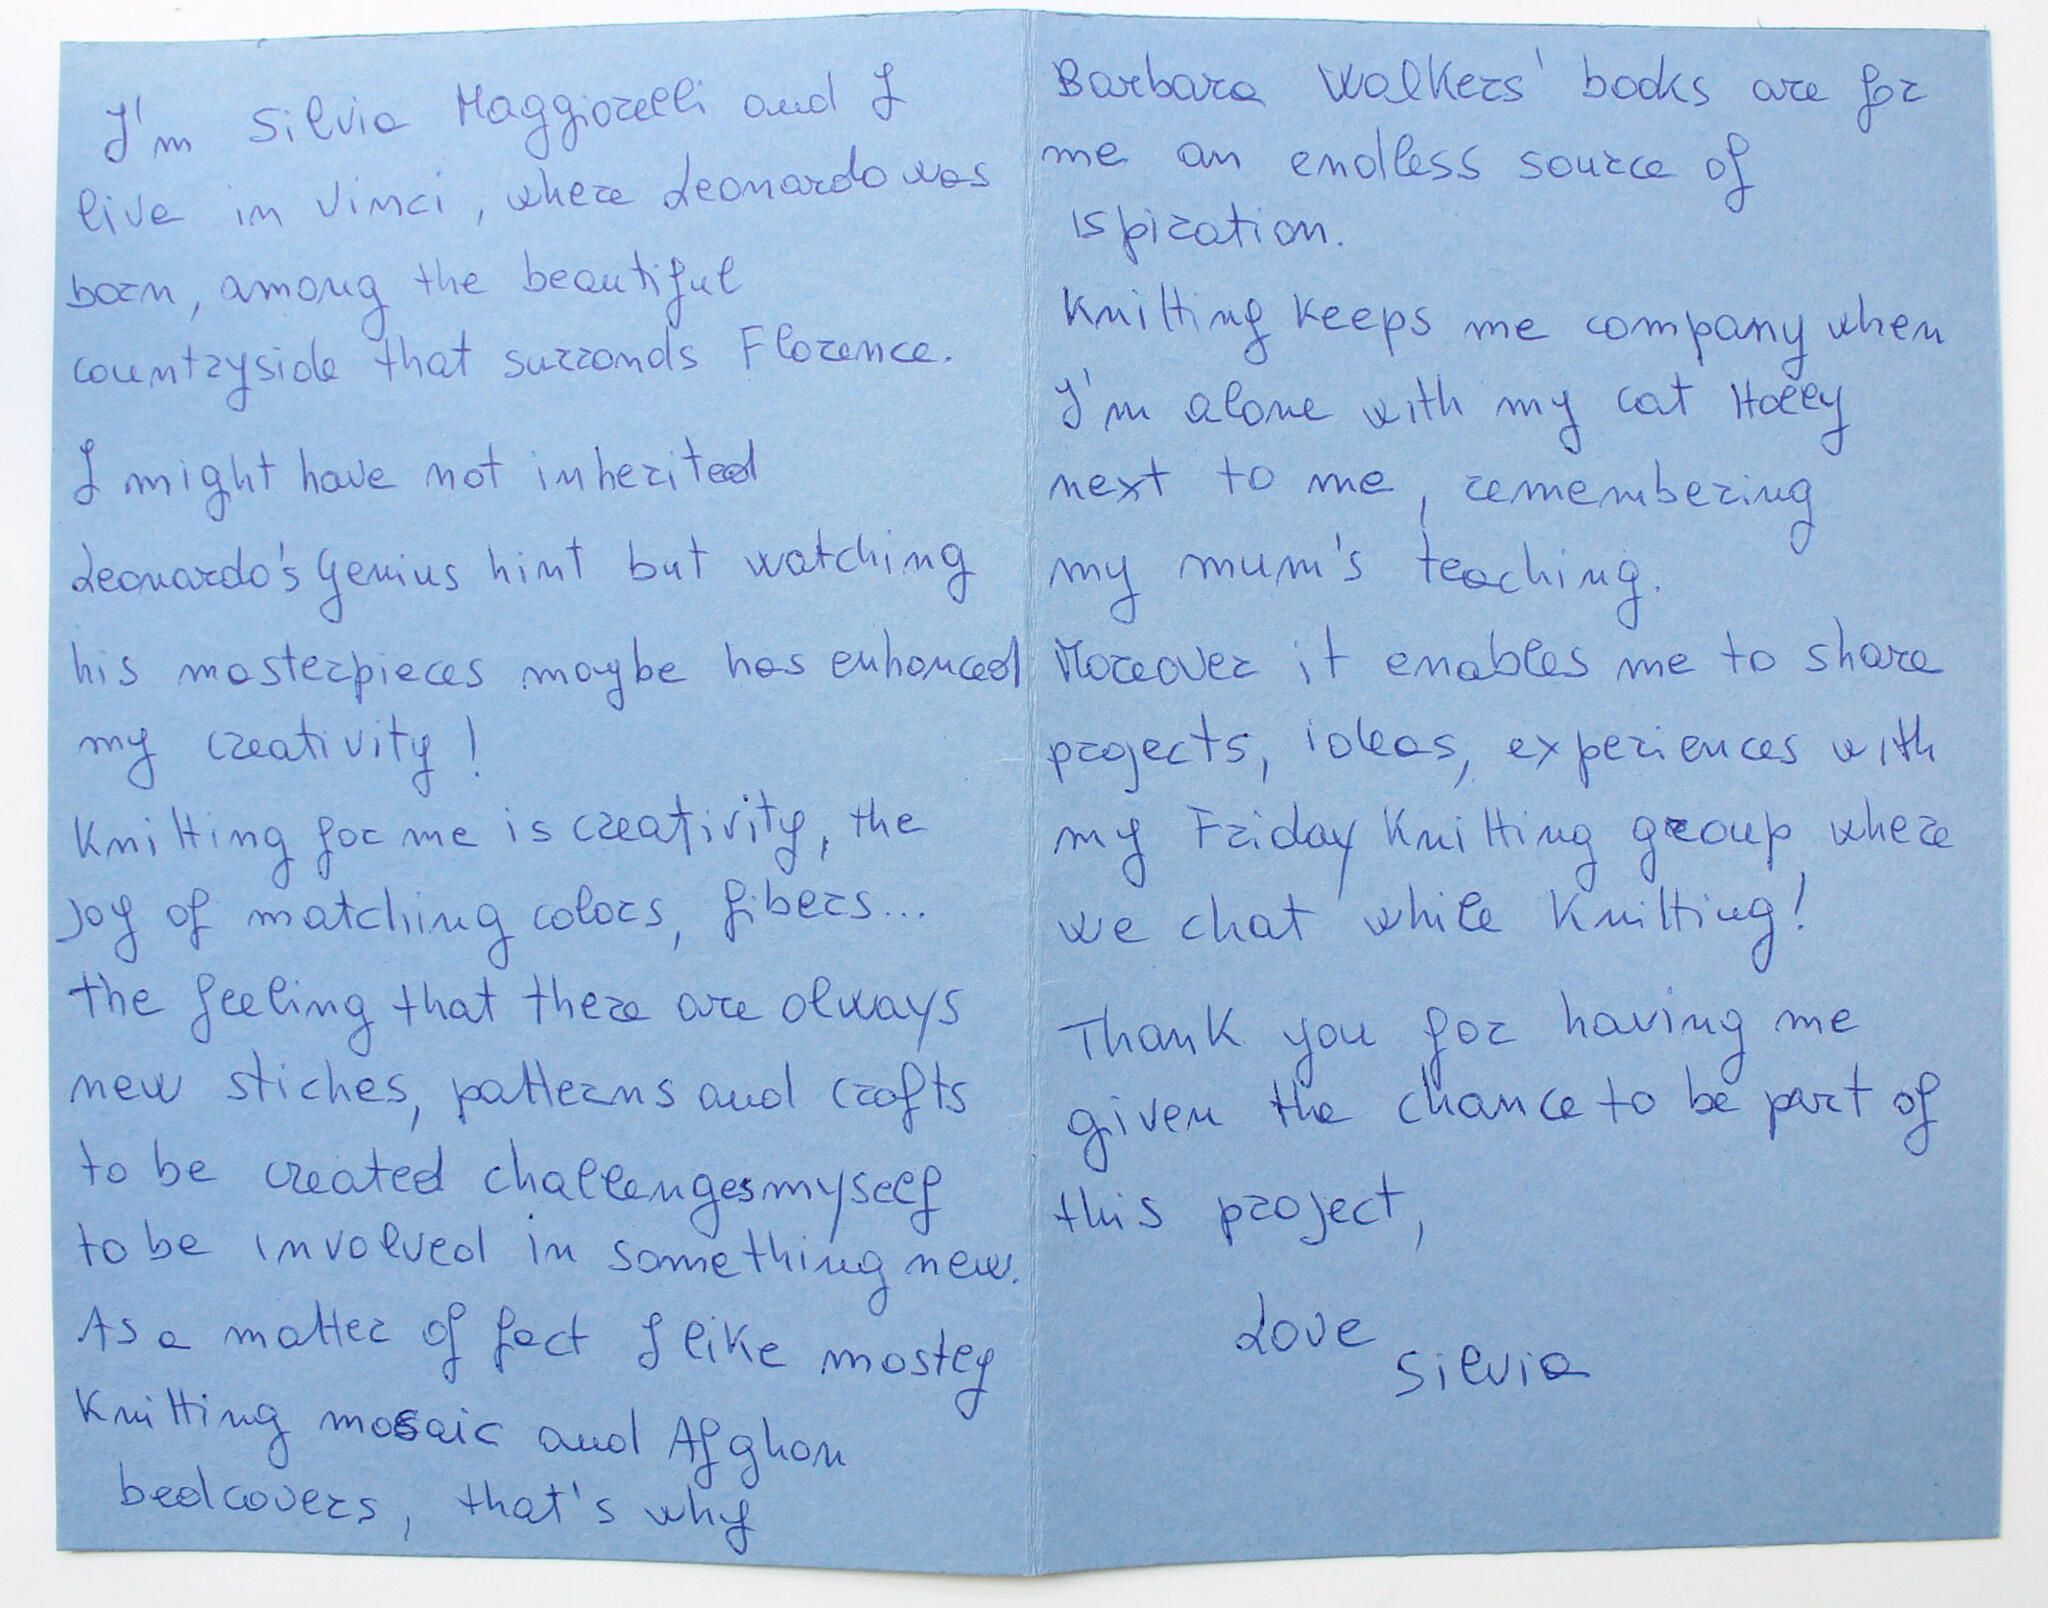 I'm Silvia Maggiorelli and I
live in Vinci, where Leonardo was
born, among the beautiful
countryside that surronds Florence.
I might have not inherited
Leonardo's Genius hint but watching
his masterpieces maybe has enhanced
my creativity!
Knitting for me is creativity, the
joy of matching colors, fibers...
the feeling that there are always
new stiches, patterns and crafts
to be created challenges myself
to be involved in something new.
As a matter of fact I like mostly
Knitting mosaic and Afghan
bedcovers, that's why
Barbara Walkers' books are for
me an endless source of
ispiration.
Knitting keeps me company when
I'm alone with my cat Holly
next to me, remembering
my mum's teaching.
Moreover it enables me to share
projects, ideas, experiences with
my Friday Knitting group, where
we chat while Knitting!
Thank you for having me
given the chance to be part of
this project,
Love
Silvia